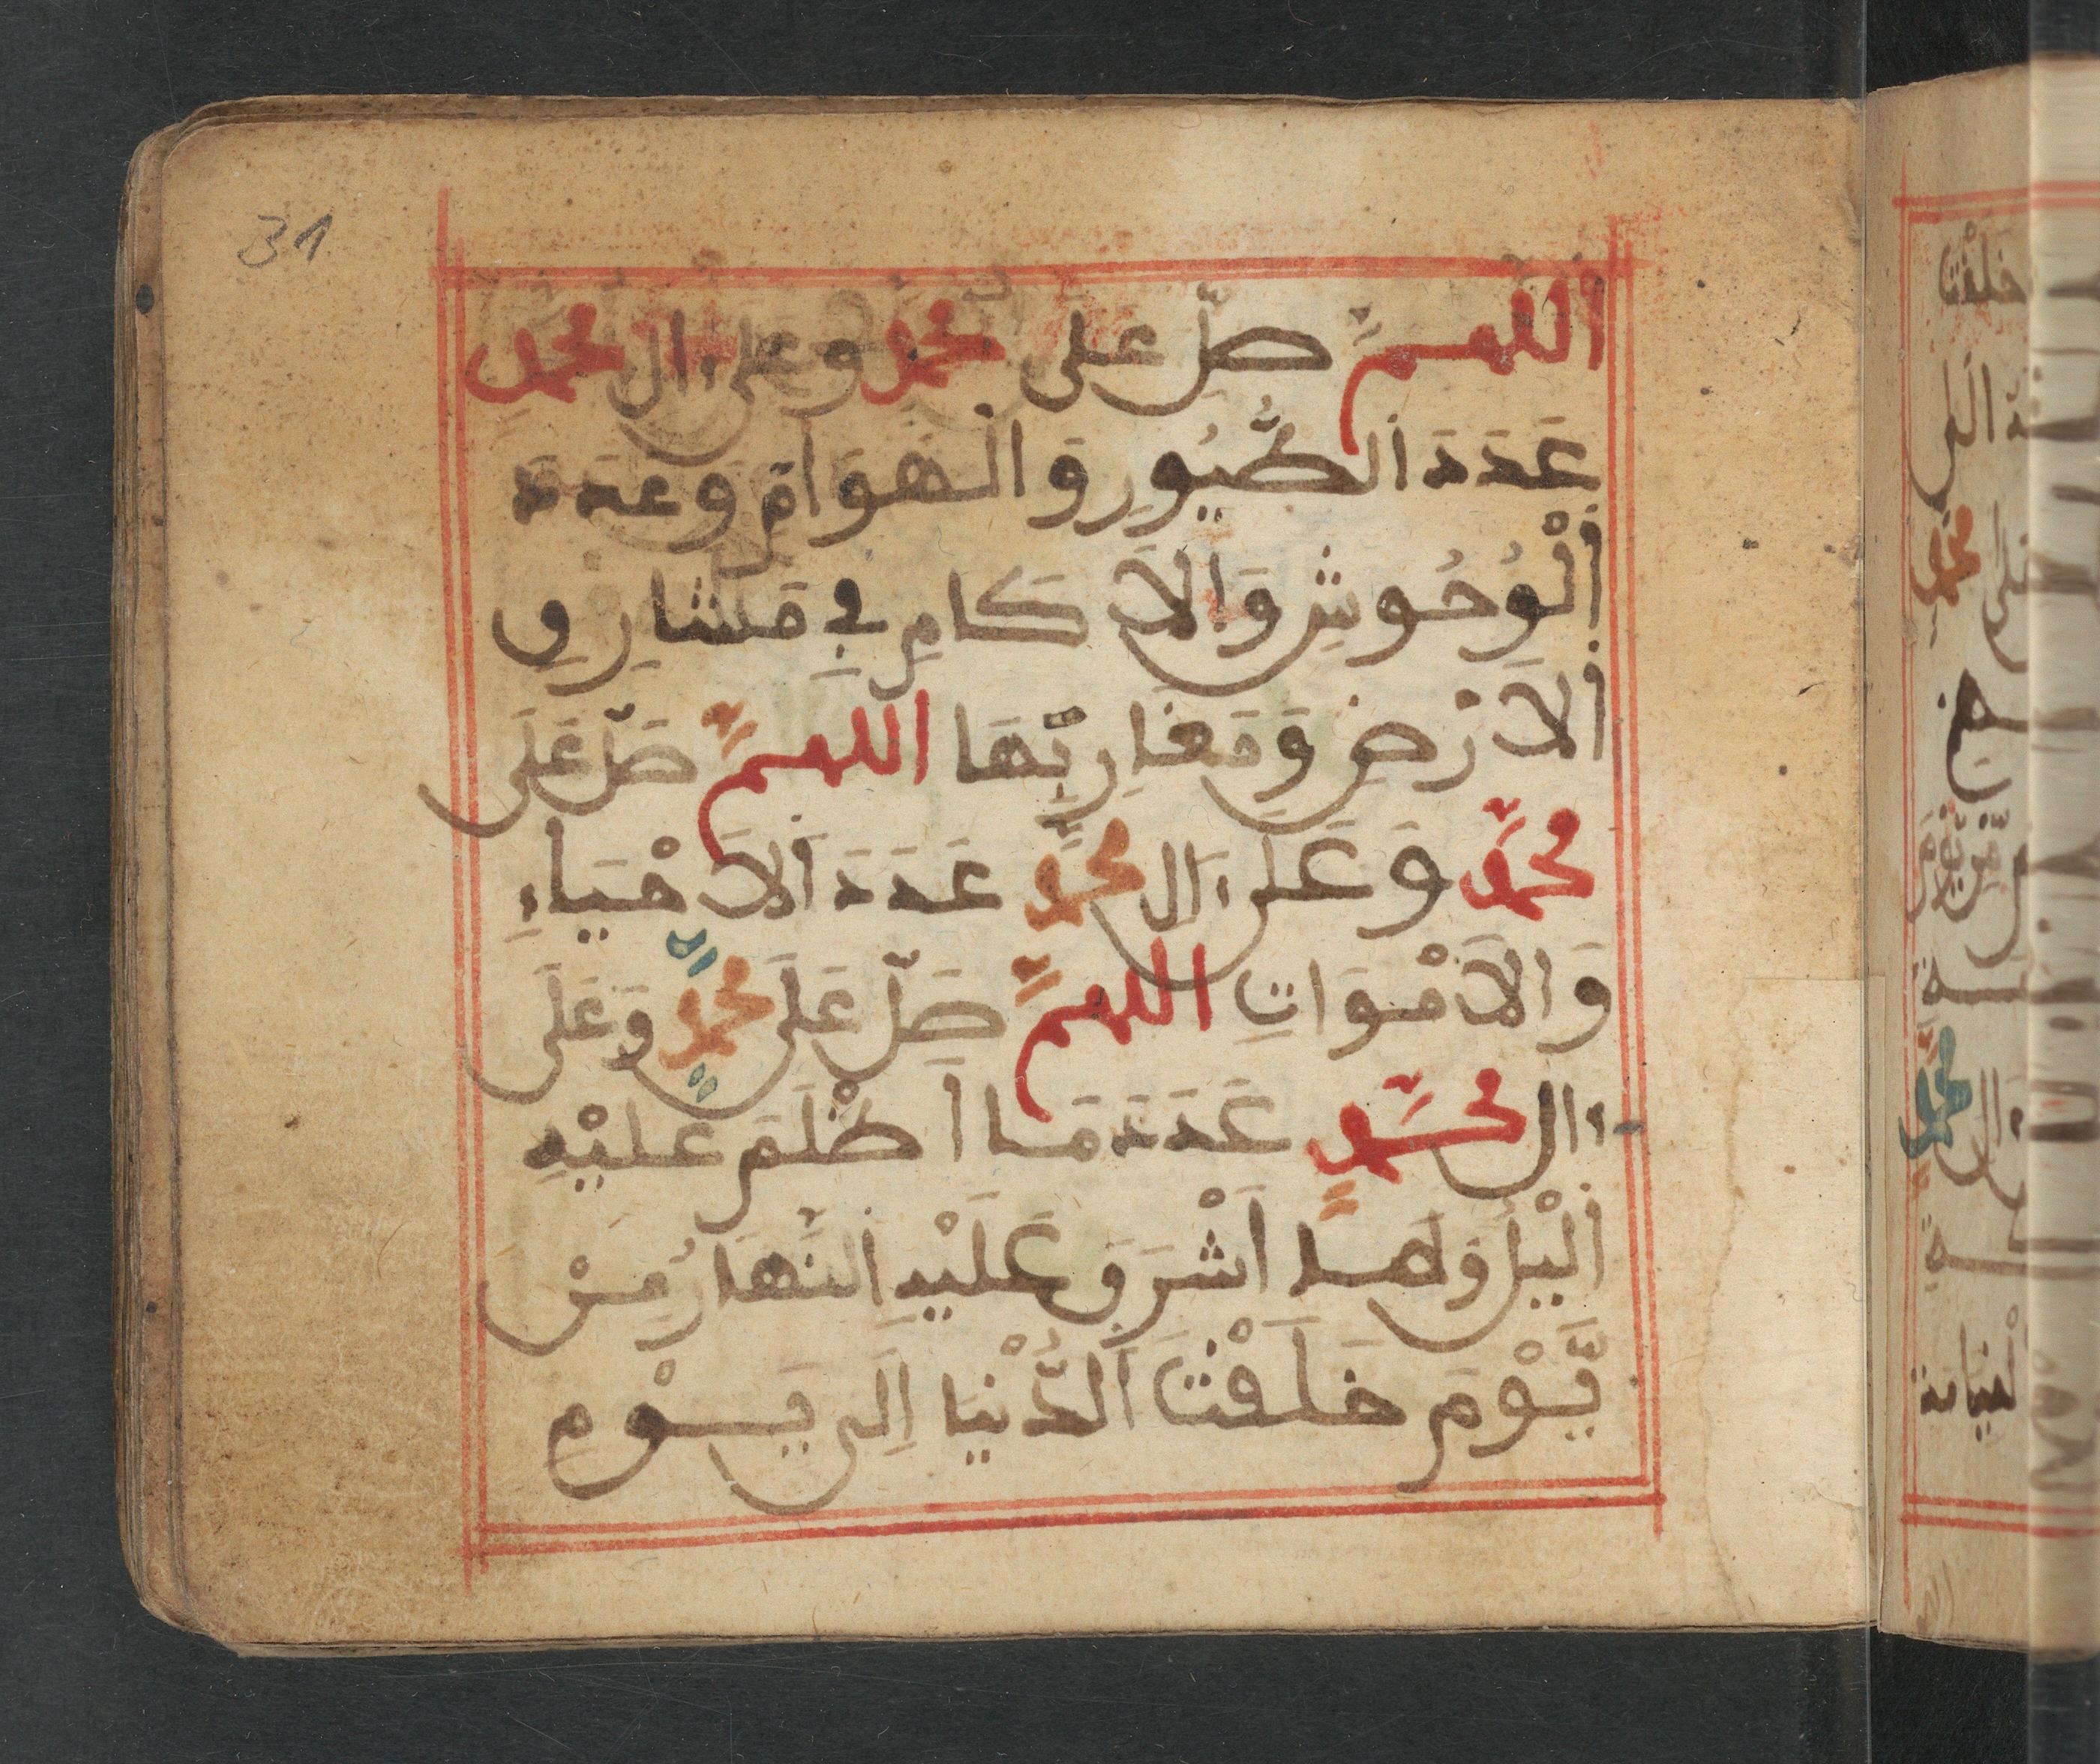 31
اللهمَّ صلِّ عَلى محمد وعلى ءال محمدِ
عَدَدَ الطُّيُورِ وَالْهَوَامِّ وَعَدَدَ
اَلْوُحُوشِ وَالاَكَامِ فِي مَشَارِقِ
اَلاَرْضِ وَمَغَارِبِهَا اللهمَّ صَلِّ عَلَى
محمَّدٍ وَعَلَى ءَالِ محمَّدٍ عَدَدَ اَلاَحْيَاءِ
وَالاَمْوَاتِ اللهمَّ صَلِّ عَلَى محمَّدٍ وَعَلَى
ءال محمَّدٍ عَدَدَ مَا اَظْلَمَ عَليْهِ
اَلْيْلُ وَمَا اَشْرَقَ عَلَيْهِ اِلنَّهَارُ مِنْ
يَّوْمَ خَلَقْتَ اَلدُّنْيَا اِلَى يَوْمِ